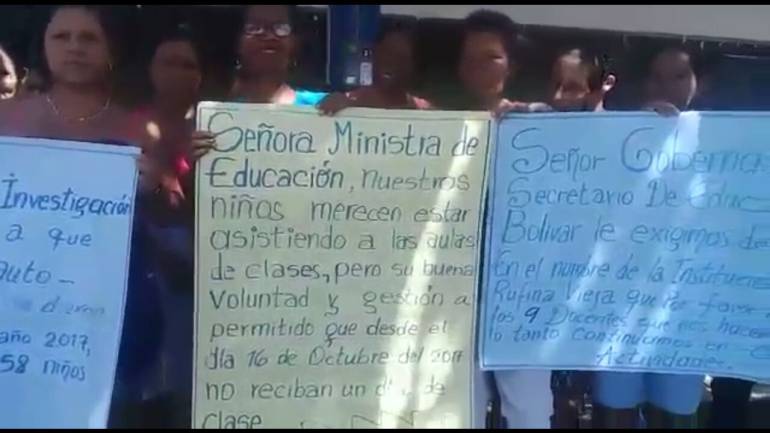 Investigación
a que
auto-
año 2017,
58 niños
Señora Ministra de
Educación, nuestros
niños merecen estar
asistiendo a las aulas
de clases, pero su buena
voluntad y gestión a
permitido que desde el
día 16 de Octubre del 2017
no reciban un de
clase
Señor
Secretario De
Bolivar le exigimos
En el nombre de la
Rufina Viera que por favor
los 9 Docentes que nos hacen
lo tanto continuamos en
Actividades.